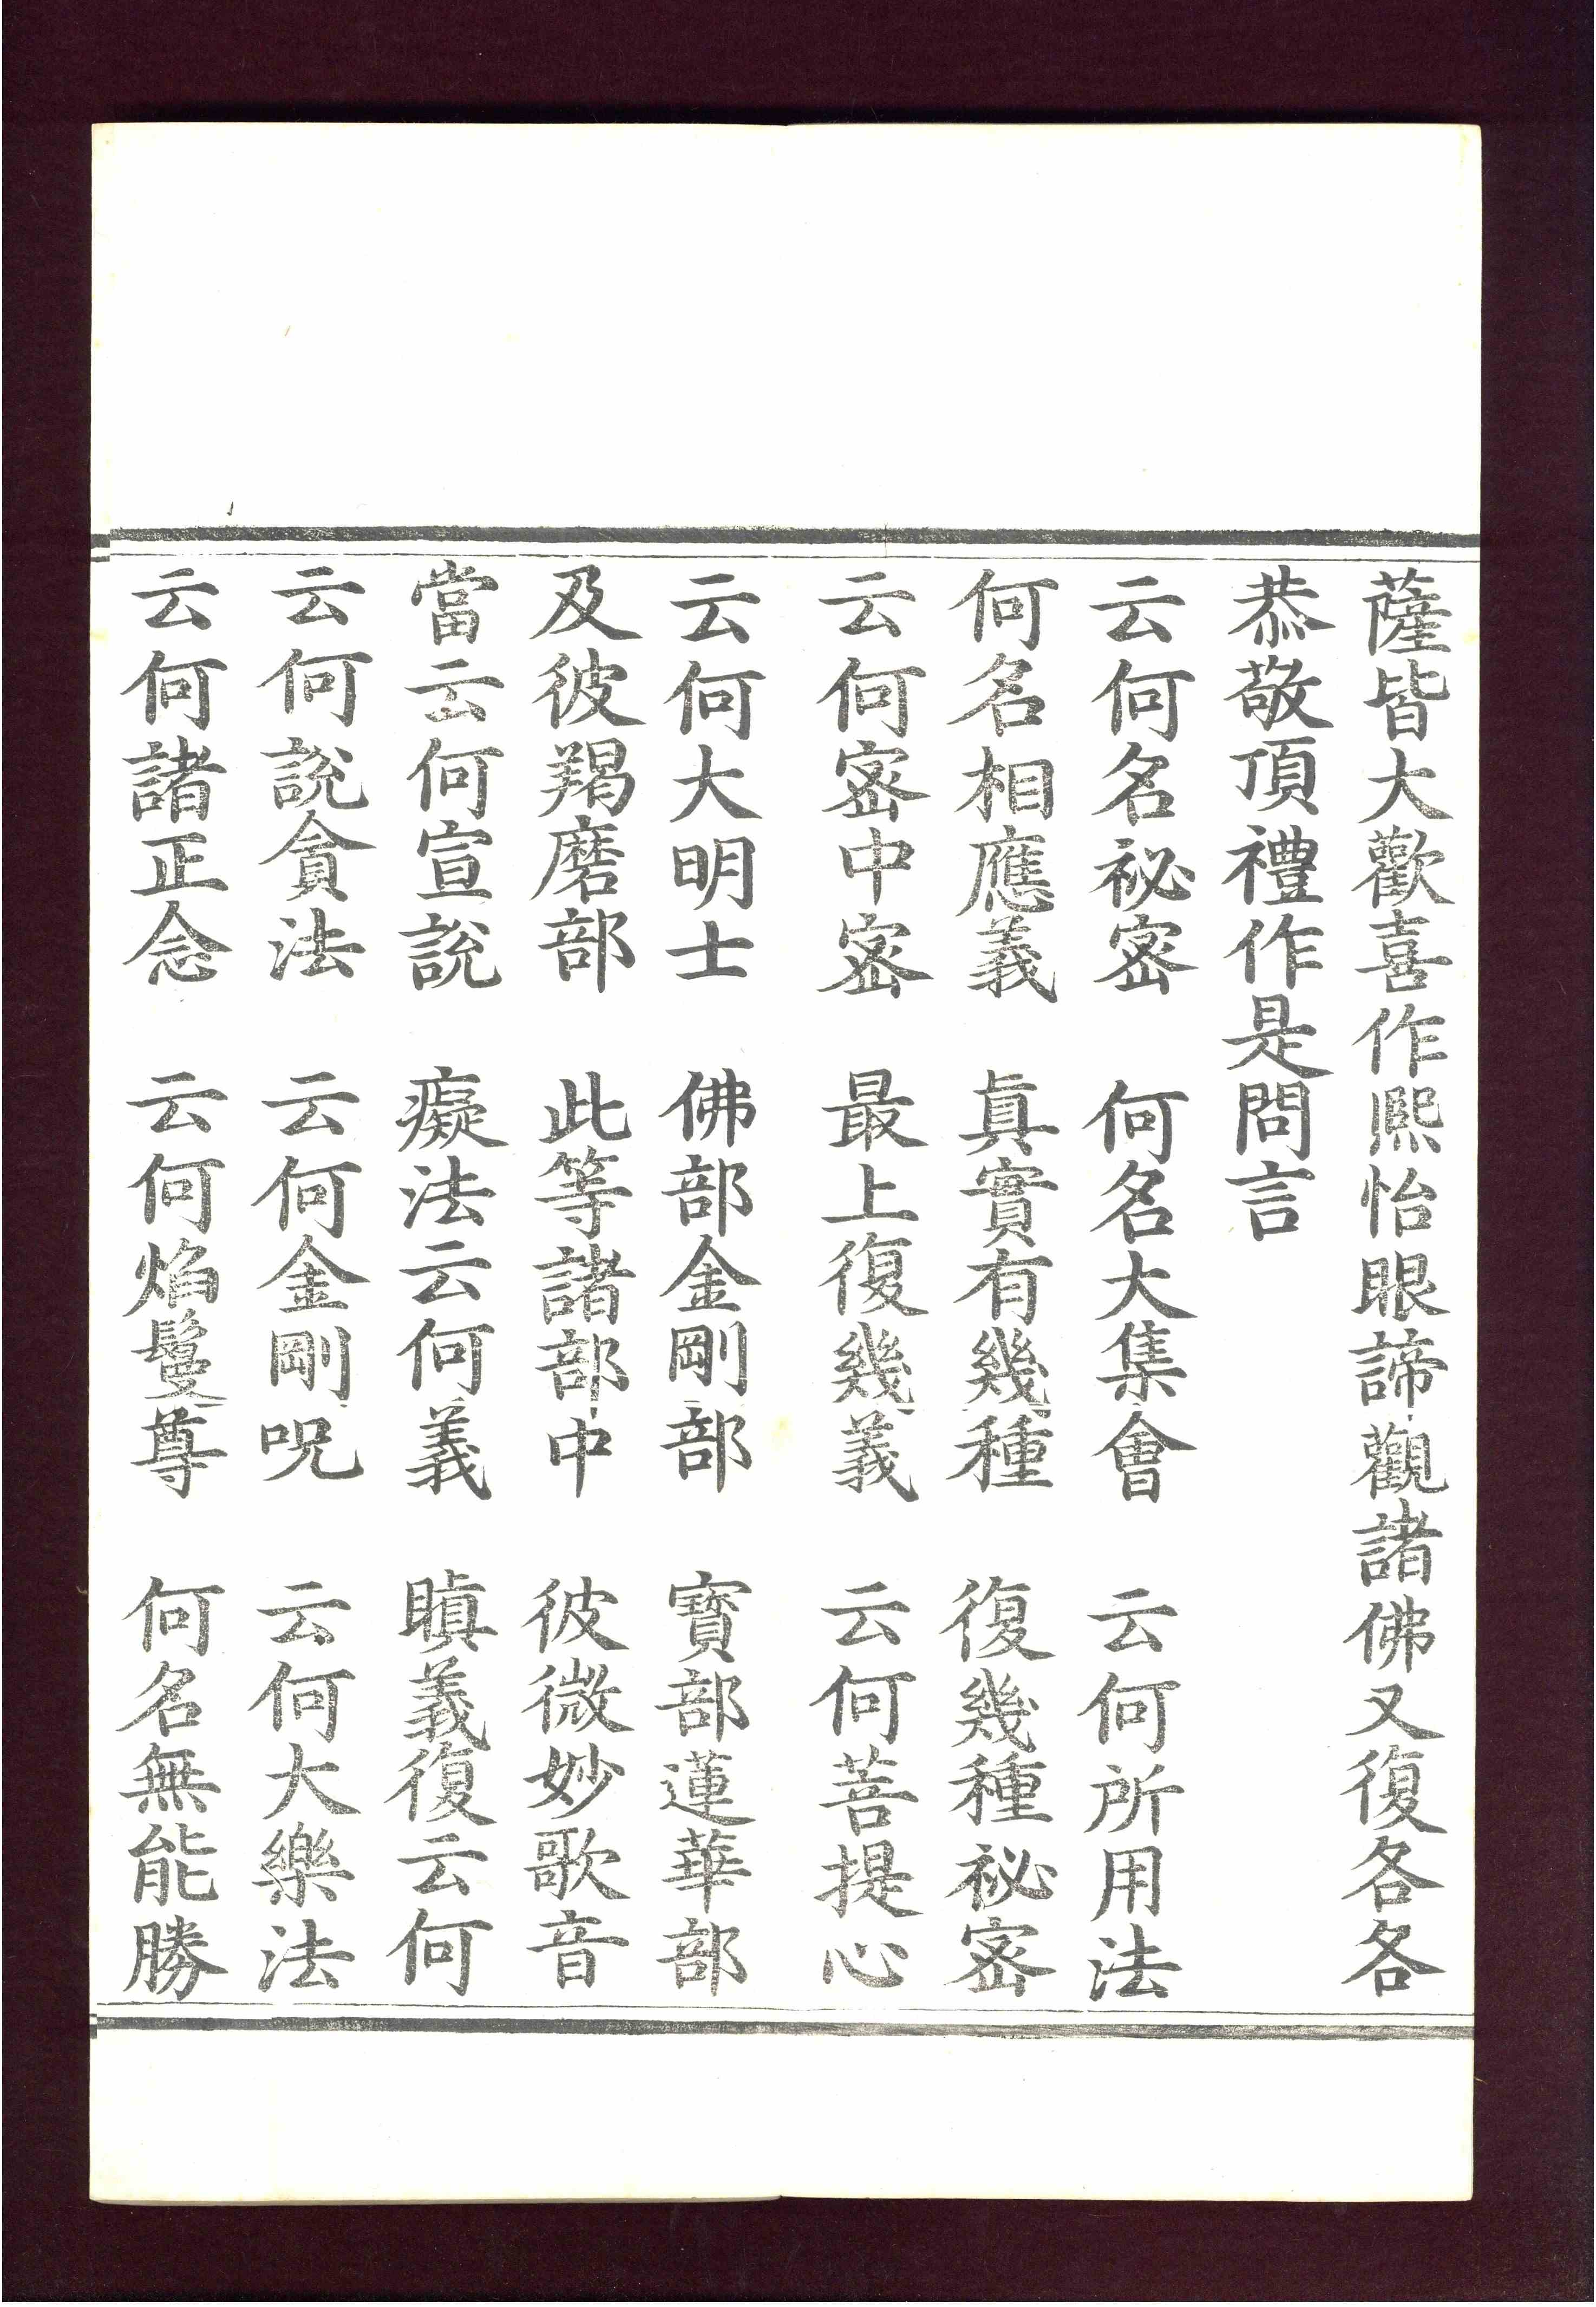 薩皆大歡喜作熈怡眼諦觀諸佛又復各各
恭敬頂禮作是問言
云何名祕密　何名大集會　云何所用法
何名相應義　眞實有幾種　復幾種祕密
云何密中密　最上復幾義　云何菩提心
云何大明士　佛部金剛部　寳部蓮華部
及彼羯磨部　此等諸部中　彼微妙歌音
當云何宣說　癡法云何義　瞋義復云何
云何說貪法　云何金剛呪　云何大樂法
云何諸正念　云何焰鬘尊　何名無能勝